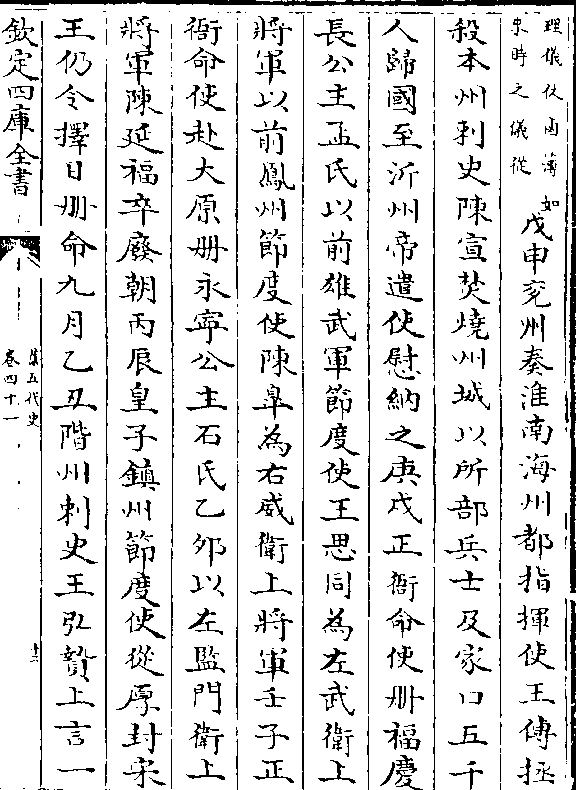 理儀仗鹵簿如
東時之儀從
戊申兖州奏淮南海州都指揮使王傳拯
殺本州刺史陳宣焚燒州城以所部兵士及家口五千
人歸國至沂州帝遣使慰納之庚戌正衙命使册福慶
長公主孟氏以前雄武軍節度使王思同為左武衛上
將軍以前鳳州節度使陳臯為右威衛上將軍壬子正
衙命使赴太原册永寧公主石氏乙夘以左監門衛上
將軍陳延福卒廢朝丙辰皇子鎮州節度使從厚封宋
王仍令擇日册命九月乙丑階州刺史王弘贄上言一
欽定四庫全書
舊五代史
卷四十一
十二